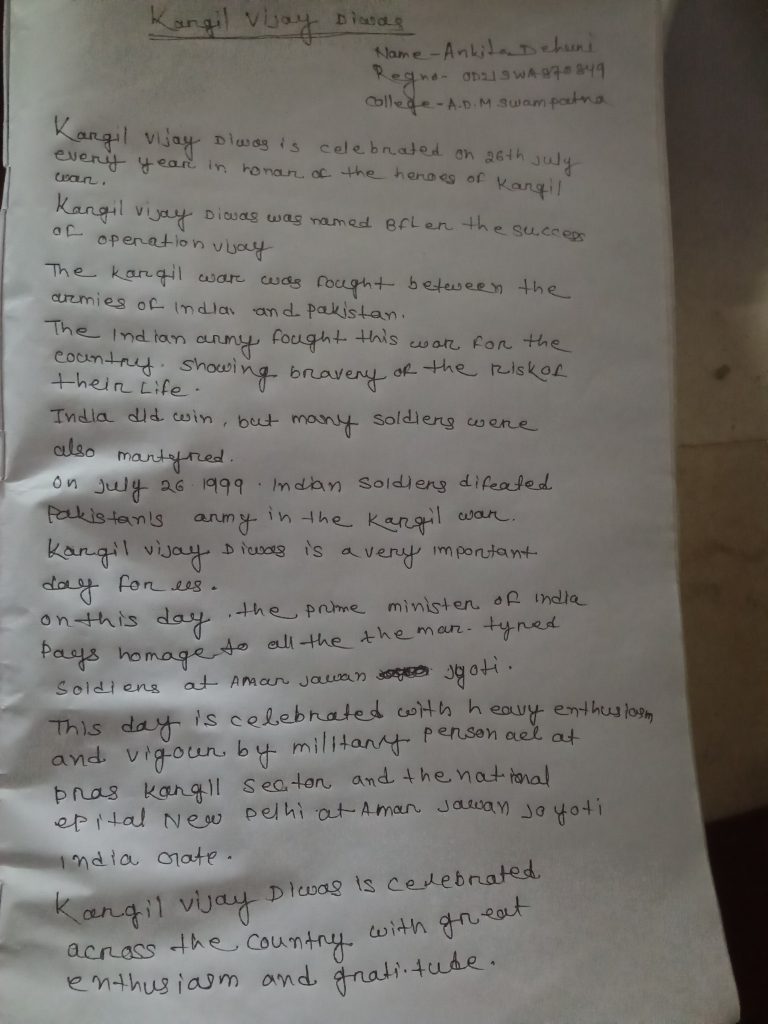 Kangil Vijay Diwas
Name - Ankita Dehuri
Regno - OD21SWA870849
College - A.D.M Swampatna
Kangil Vijay Diwas is celebrated on 26th July
every year in honar of the heroes of Kangil
war.
Kangil Vijay Diwas was named after the success
of operation vijay
The Kargil war was fought between the
armies of India and Pakistan.
The Indian army fought this war for the
country. showing bravery of the risk of
their life.
India did win, but many soldiers were
also martyred.
on July 26. 1999. Indian soldiers difeated
Pakistan's army in the Kargil war.
Kangil vijay Diwas is a very important
day for us.
on this day, the prime minister of India
pays homage to all the the mar-tyred
soldiers at Amar Jawan Jyoti.
This day is celebrated with heavy enthusiasm
and vigour by military personael at
Dras Kangil sector and the national
epital New Delhi at Amar Jawan Joyoti
India Gate.
Kangil Vijay Diwas is celebrated
across the country with great
enthusiasm and grati-tude.